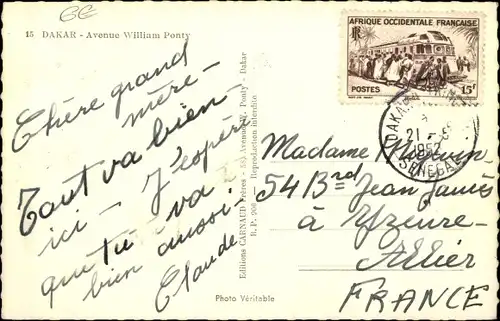 GE
15 DAKAR - Avenue William Ponty
Chère grand
mère -
Tout va bien
ici - J'espère
que tu va
bien aussi -
Claude
Editions CARNAUD Frères - Avenue W. Ponty - Dakar
R. P. 906 - Reproduction interdite
Photo Véritable
AFRIQUE OCCIDENTALE FRANÇAISE
RF
POSTES
15F
DAKAR
21 - 8
1952
SENEGAL
Madame
54 Bd Jean Jaurès
à Yzeure -
Allier
FRANCE